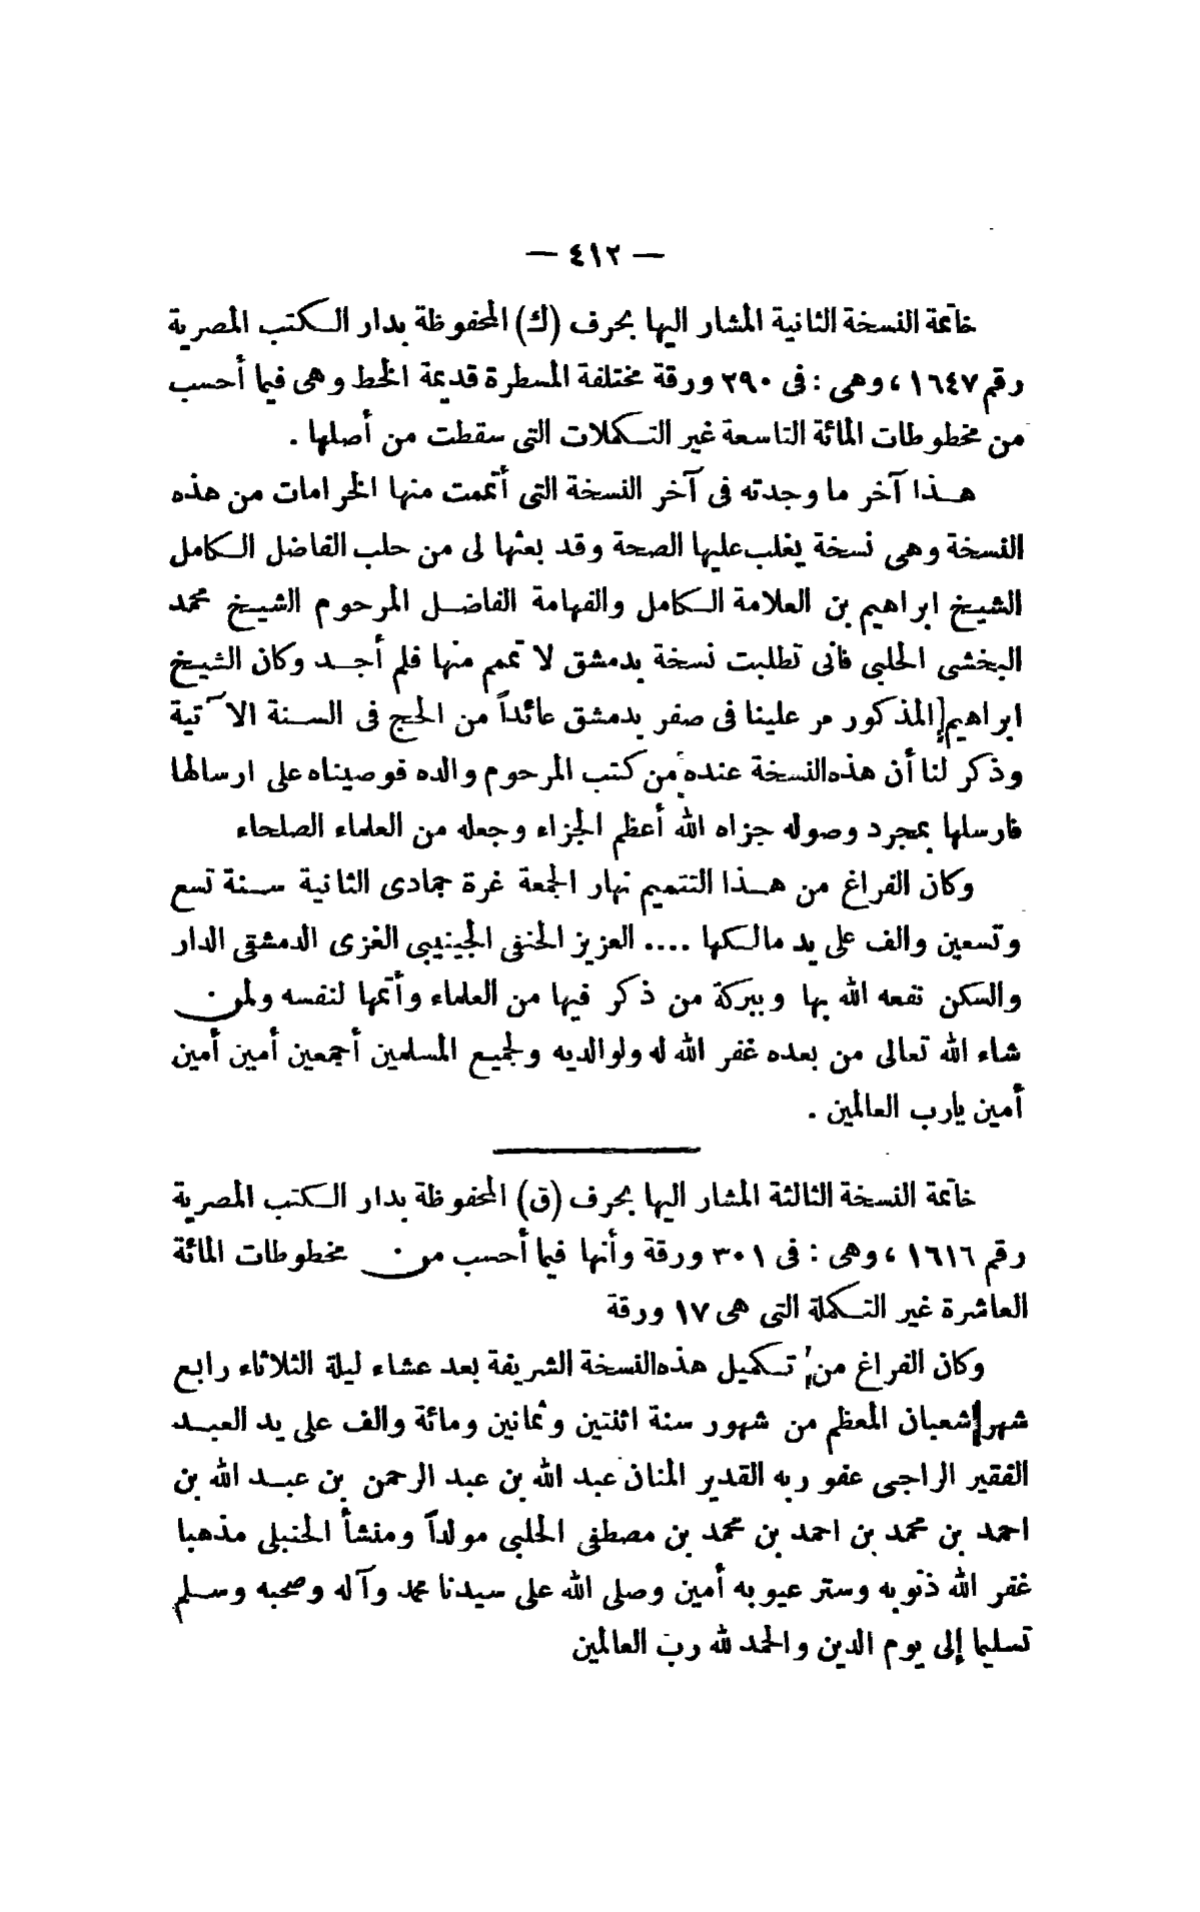 — ٤١٢ —
خاتمة النسخة الثانية المشار اليها بحرف (ك) المحفوظة بدار الكتب المصرية
رقم ١٦٤٧ ، وهى : فى ٢٩٠ ورقة مختلفة المسطرة قديمة الخط وهى فيما أحسب
من مخطوطات المائة التاسعة غير التكملات التى سقطت من أصلها .
هذا آخر ما وجدته فى آخر النسخة التى أتممت منها الخرامات من هذه
النسخة وهى نسخة يغلب عليها الصحة وقد بعثها لى من حلب الفاضل الكامل
الشيخ ابراهيم بن العلامة الكامل والفهامة الفاضل المرحوم الشيخ محمد
البخشى الحلبى فانى تطلبت نسخة بدمشق لا تمم منها فلم أجد وكان الشيخ
ابراهيم المذكور مر علينا فى صفر بدمشق عائداً من الحج فى السنة الآتية
وذكر لنا أن هذه النسخة عنده من كتب المرحوم والده فوصيناه على ارسالها
فارسلها بمجرد وصوله جزاه الله أعظم الجزاء وجعله من العلماء الصلحاء
وكان الفراغ من هذا التتميم نهار الجمعة غرة جمادى الثانية سنة تسع
وتسعين والف على يد مالكها .... العزيز الحنفى الجينيبى الغزى الدمشقى الدار
والسكن نفعه الله بها وببركة من ذكر فيها من العلماء وأتمها لنفسه ولمن
شاء الله تعالى من بعده غفر الله له ولوالديه ولجميع المسلمين أجمعين أمين أمين
أمين يارب العالمين .
خاتمة النسخة الثالثة المشار اليها بحرف (ق) المحفوظة بدار الكتب المصرية
رقم ١٦١٦ ، وهى : فى ٣٠١ ورقة وأنها فيما أحسب من مخطوطات المائة
العاشرة غير التكملة التى هى ١٧ ورقة
وكان الفراغ من تكميل هذه النسخة الشريفة بعد عشاء ليلة الثلاثاء رابع
شهر شعبان المعظم من شهور سنة اثنتين وثمانين ومائة والف على يد العبد
الفقير الراجى عفو ربه القدير المنان عبد الله بن عبد الرحمن بن عبد الله بن
احمد بن محمد بن احمد بن محمد بن مصطفى الحلبى مولداً ومنشأ الحنبلى مذهبا
غفر الله ذنوبه وستر عيوبه أمين وصلى الله على سيدنا محمد وآله وصحبه وسلم
تسليما إلى يوم الدين والحمد لله رب العالمين